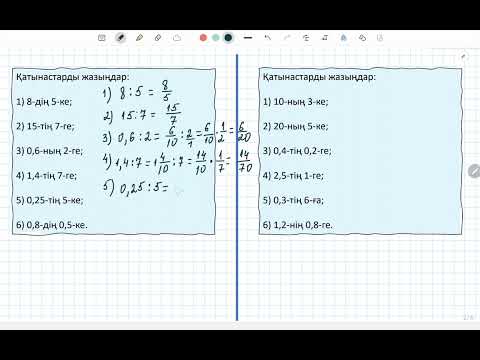 Қатынастарды жазыңдар:
1) 8-дің 5-ке;
2) 15-тің 7-ге;
3) 0,6-ның 2-ге;
4) 1,4-тің 7-ге;
5) 0,25-тің 5-ке;
6) 0,8-дің 0,5-ке.
1) 8 : 5 = 8/5
2) 15 : 7 = 15/7
3) 0,6 : 2 = 6/10 : 2/1 = 6/10 · 1/2 = 6/20
4) 1,4 : 7 = 1 4/10 : 7 = 14/10 · 1/7 = 14/70
5) 0,25 : 5 =
Қатынастарды жазыңдар:
1) 10-ның 3-ке;
2) 20-ның 5-ке;
3) 0,4-тің 0,2-ге;
4) 2,5-тің 1-ге;
5) 0,3-тің 6-ға;
6) 1,2-нің 0,8-ге.